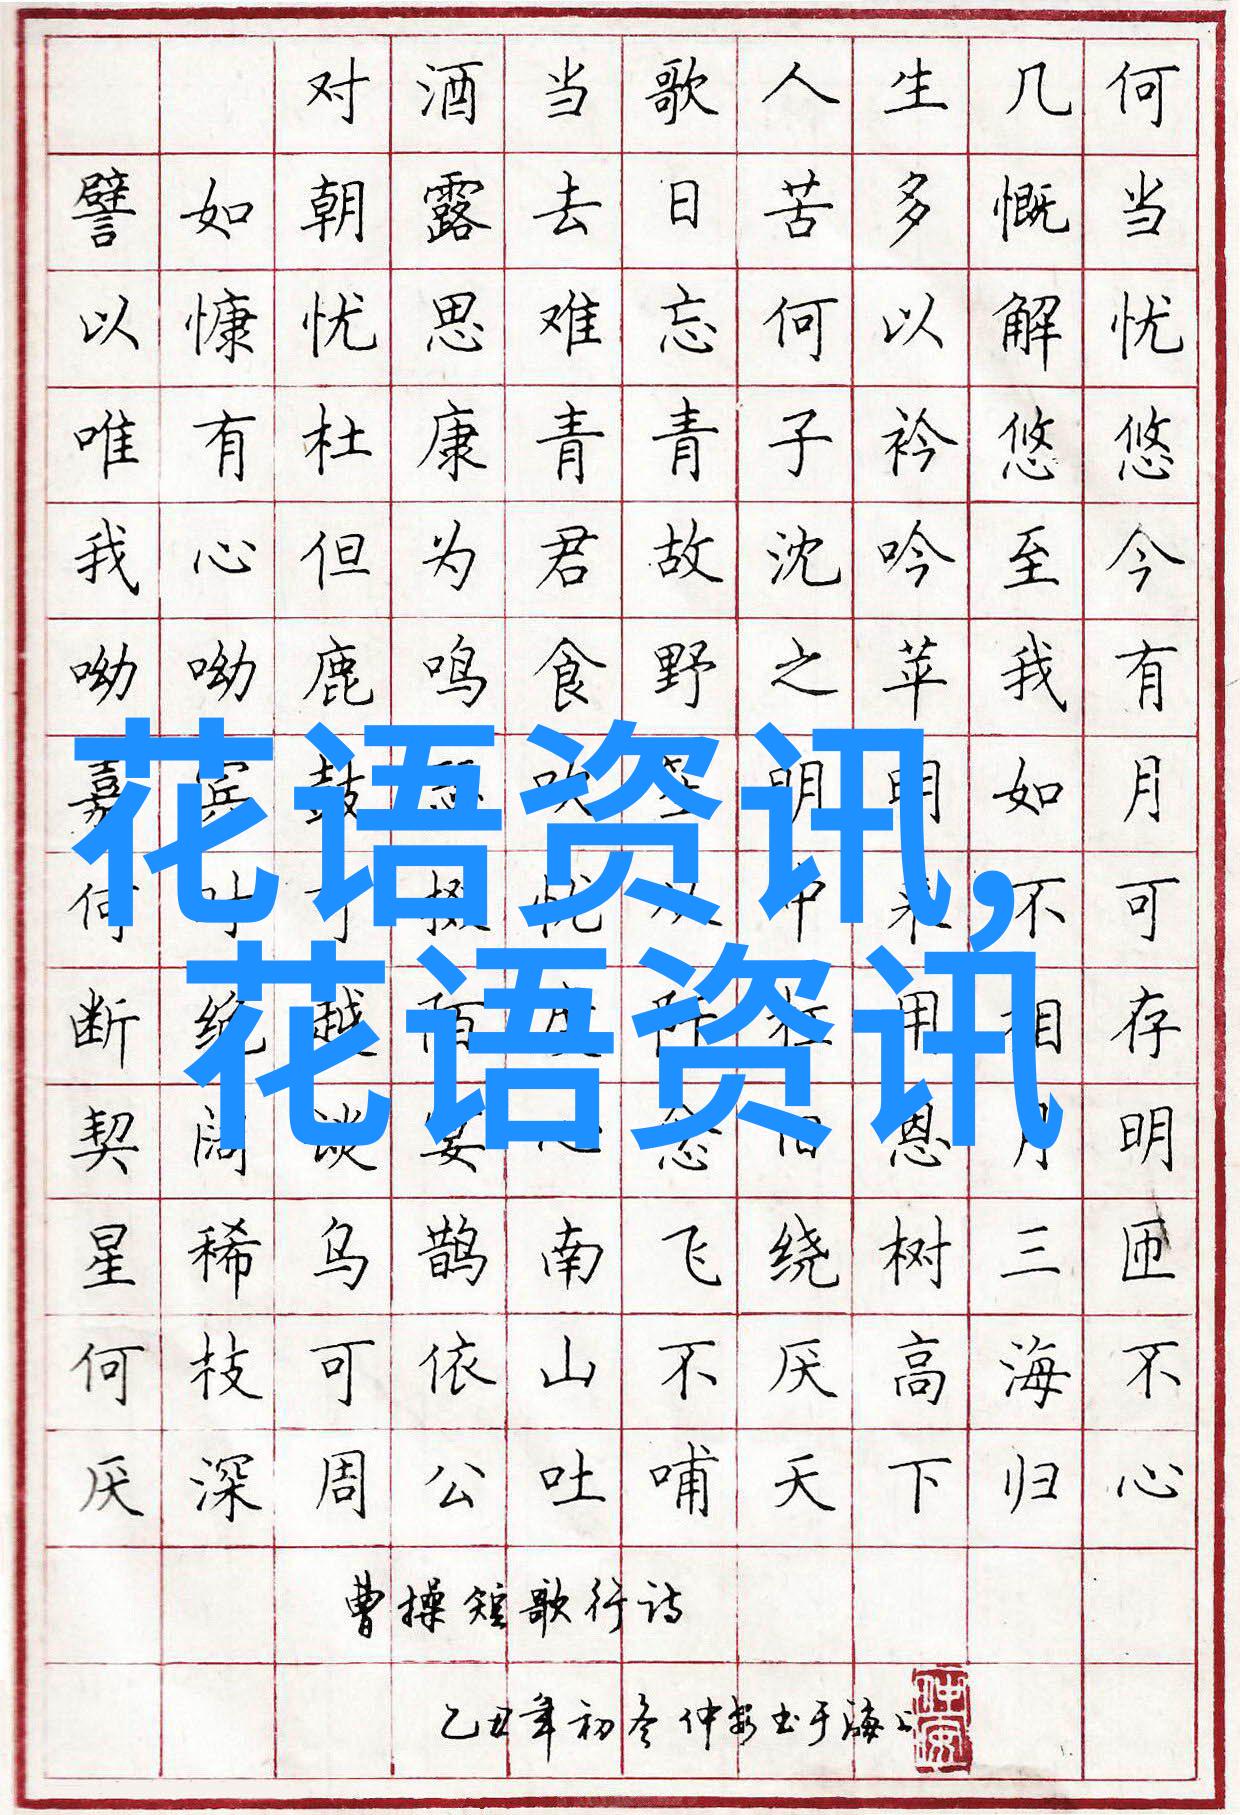 对酒当歌人生几何
譬如朝露去日苦多慨当
以慷忧思难忘何以解忧
唯有杜康青青子衿悠悠
我心但为君故沈吟至今
呦呦鹿鸣食野之苹我有
花语资讯,
嘉宾鼓吹明明如月
何可掇忧从中来不可
花语资讯
断绝越陌用相存
契阔谈宴念旧恩月明
星稀乌鹊南飞绕树三匝
何枝可依山不厌高海不
厌深周公吐哺天下归心
曹操短歌行诗
乙丑年初冬仲安书于海上
仲安